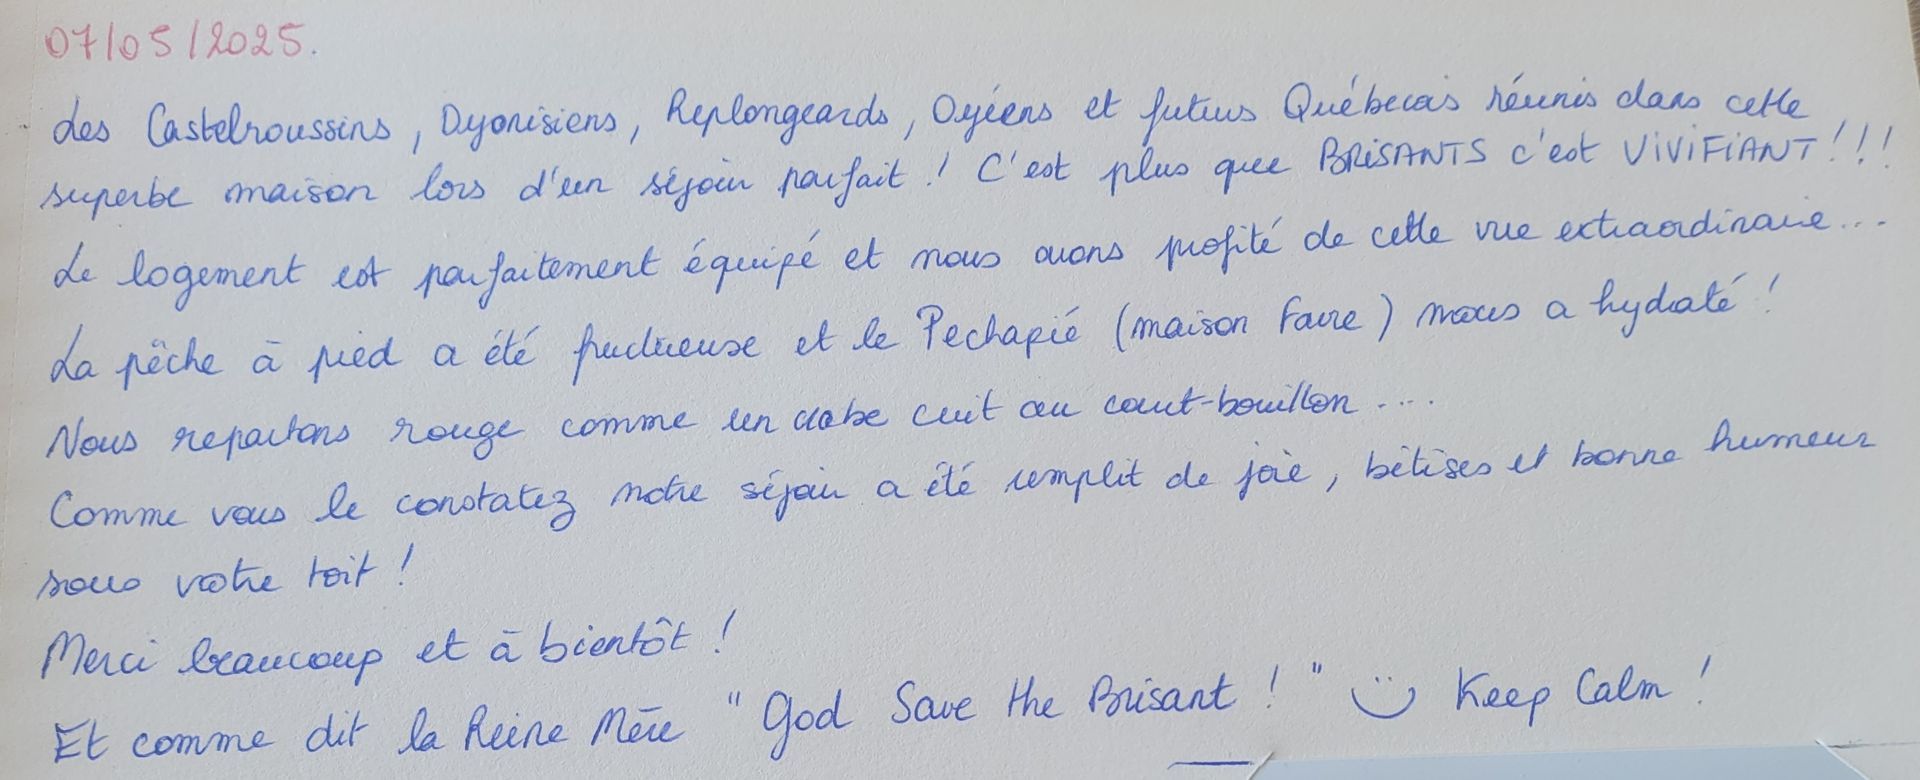 07/05/2025.
Les Castelroussins, Dyonisiens, Replongeards, Oyéens et futurs Québecois réunis dans cette
superbe maison lors d'un séjour parfait ! C'est plus que BRISANTS c'est ViViFiANT !!!
Le logement est parfaitement équipé et nous avons profité de cette vue extraordinaire...
La pêche à pied a été fructueuse et le Pechapié (maison Favre) nous a hydraté !
Nous repartons rouge comme un crabe cuit au court-bouillon ....
Comme vous le constatez notre séjour a été remplit de joie, bêtises et bonne humeur
sous votre toit !
Merci beaucoup et à bientôt !
Et comme dit la Reine Mère "God Save the Brisant !" Keep Calm !